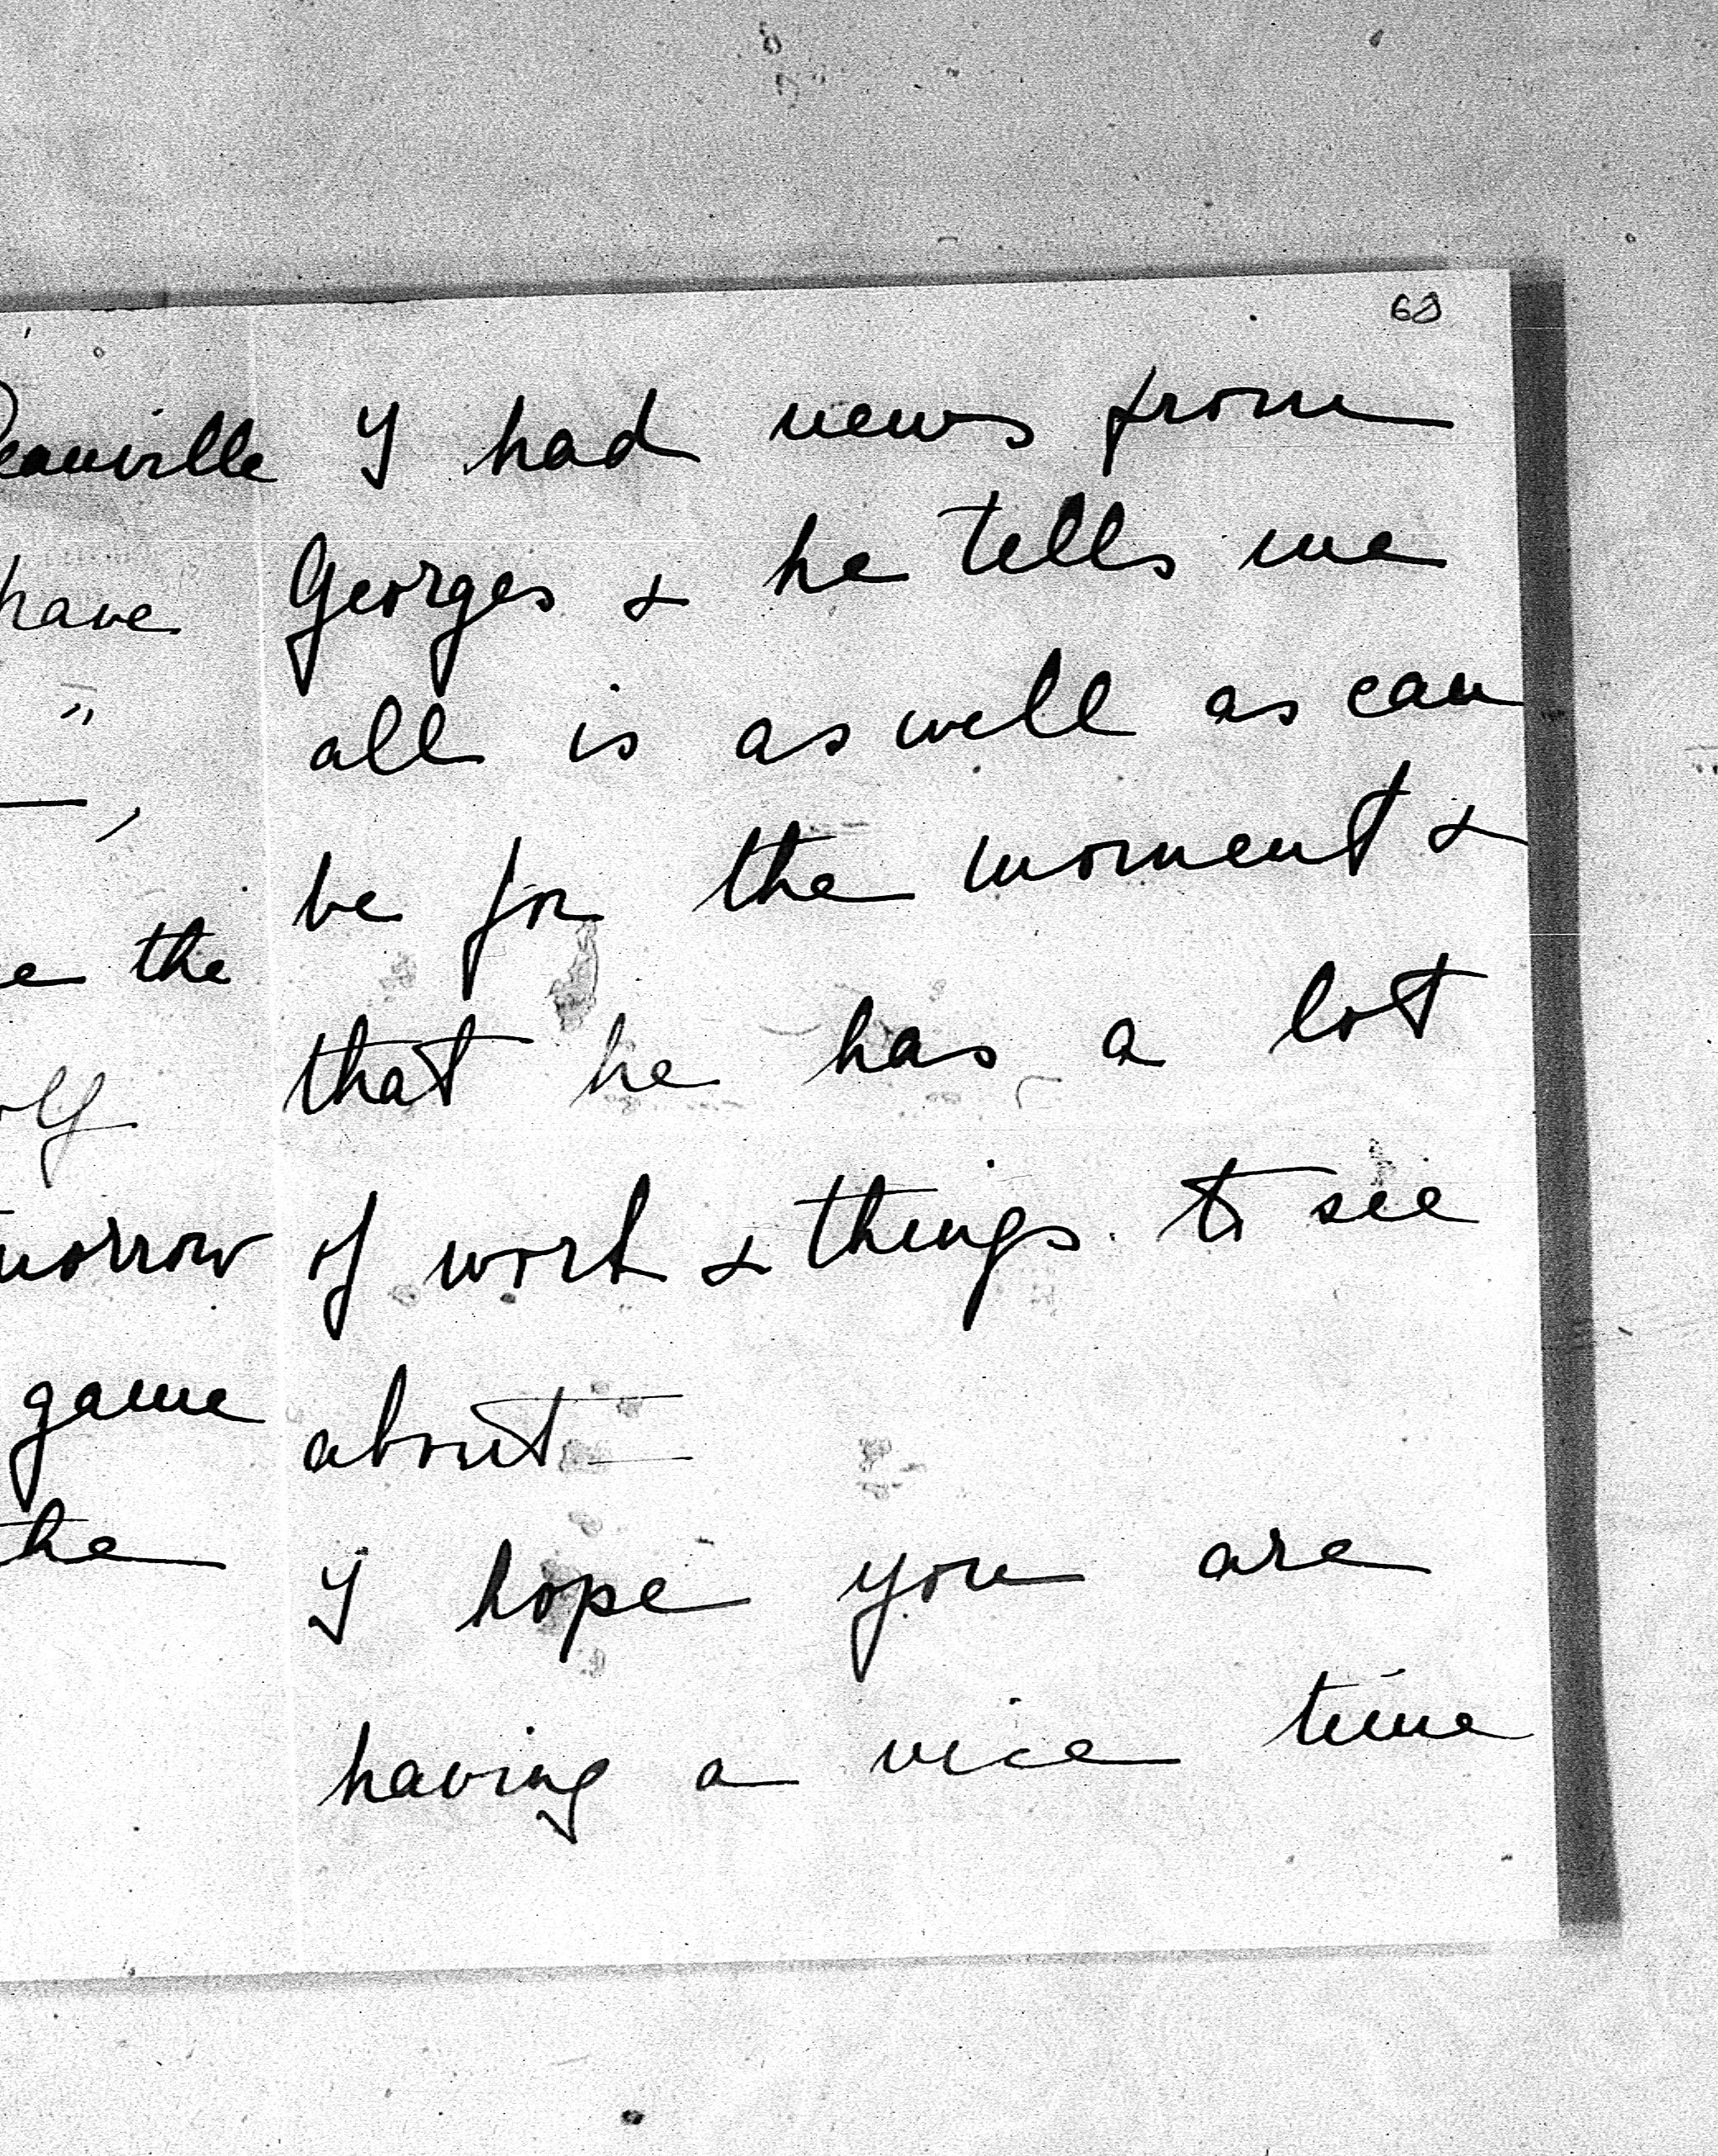 eauville
have
"
e the
olf
morrow
game
the
68
I had news from
Georges & he tells me
all is as well as can
be for the moment &
that he has a lot
of work & things. to see
about —
I hope you are
having a nice time